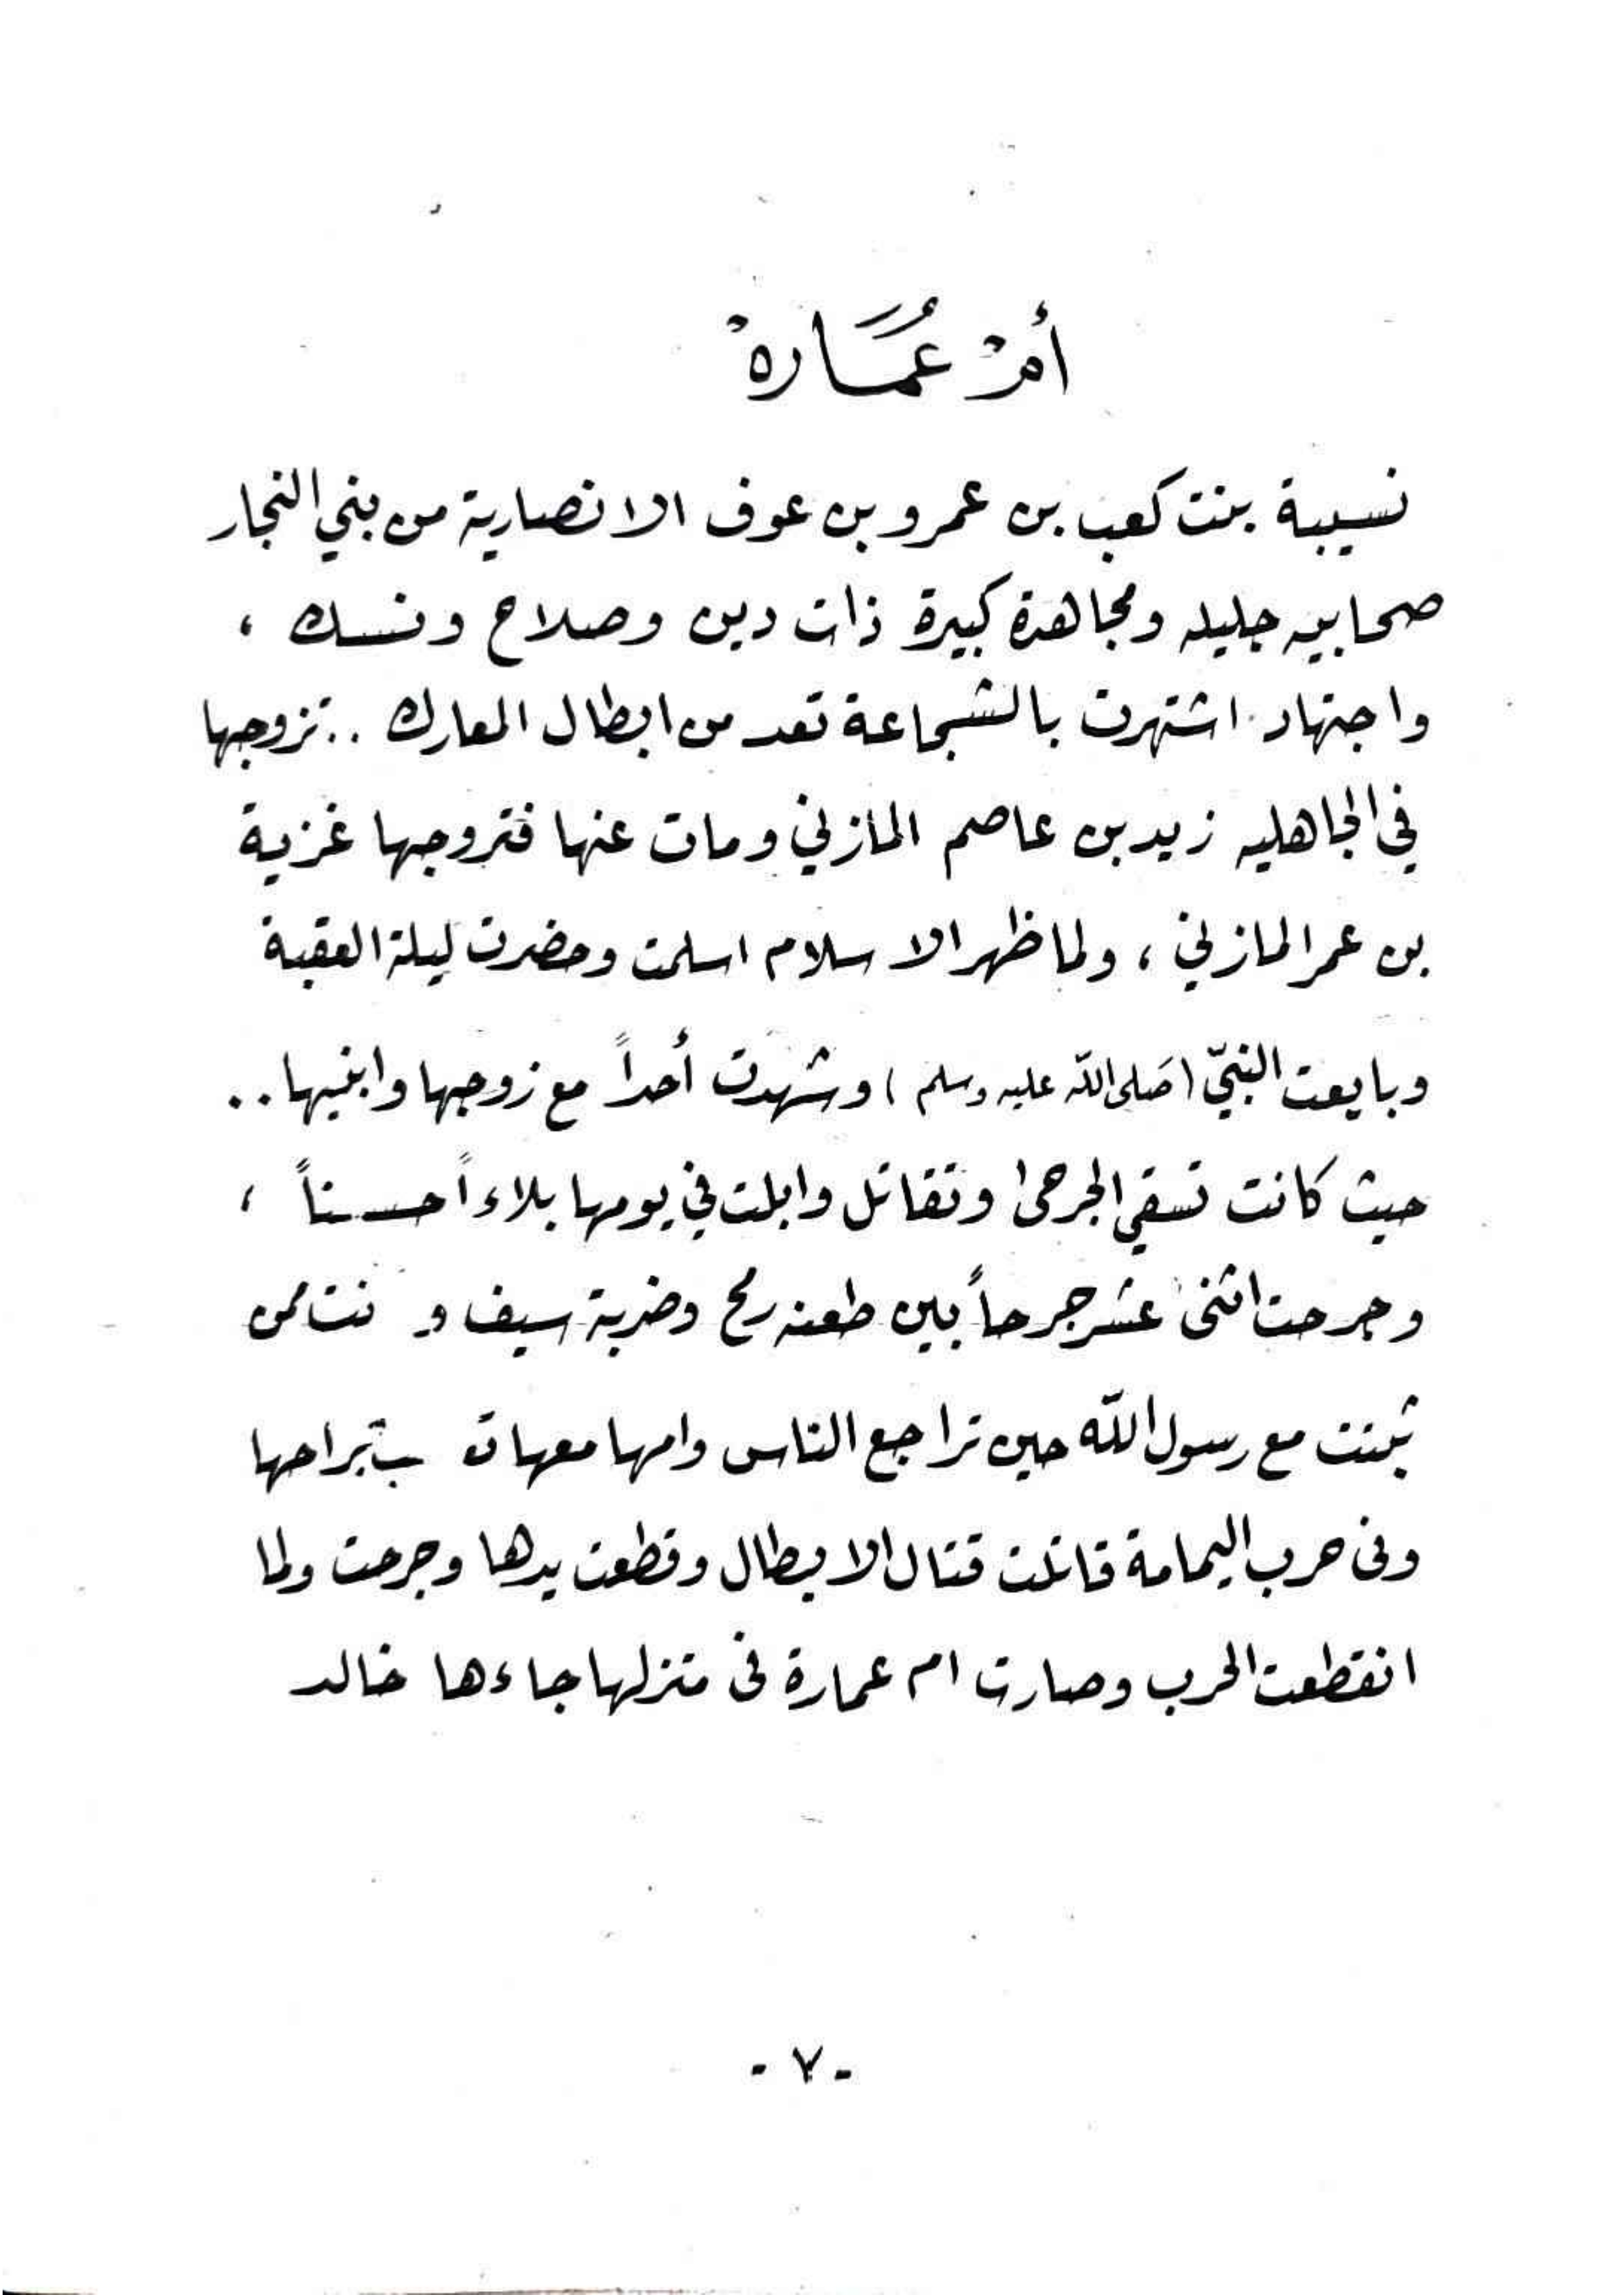 أمْ عُمَارهْ
نسيبة بنت كعب بن عمرو بن عوف الانصارية من بني النجار
صحابيه جليله ومجاهدة كبيرة ذات دين وصلاح ونسك ،
واجتهاد اشتهرت بالشجاعة تعد من ابطال المعارك .. تزوجها
في الجاهليه زيد بن عاصم المازني ومات عنها فتروجها غزية
بن عمر المازني ، ولما ظهر الاسلام اسلمت وحضرت ليلة العقبة
وبايعت النبيّ (صَلى اللّه عليه وسلم) وشهدت أحداً مع زوجها وابنيها ..
حيث كانت تسقي الجرحى وتقاتل وابلت في يومها بلاءاً حسناً ،
وجرحت اثنى عشر جرحاً بين طعنه رمح وضربة سيف و نت ممن
ثبتت مع رسول اللّه حين تراجع الناس وامها معها براحها
وفى حرب اليمامة قاتلت قتال الابطال وقطعت يدها وجرحت ولما
انقطعت الحرب وصارت ام عمارة فى منزلها جاءها خالد
- ٧ -